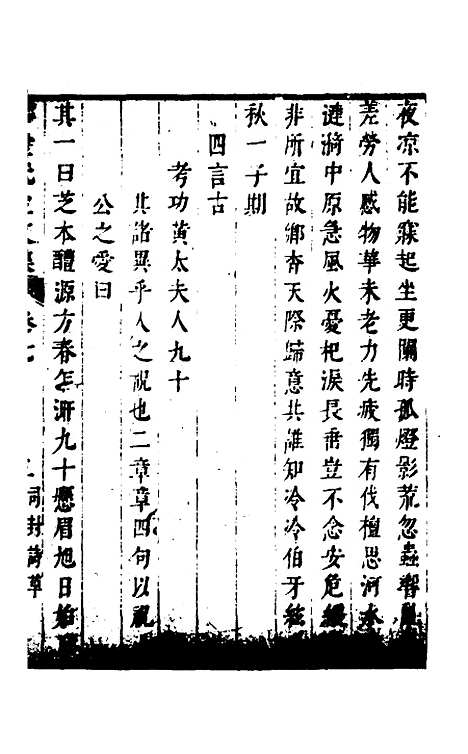 夜凉不能寐起坐更闌時孤燈影荒忽蟲響
差勞人感物華未老力先疲獨有伐檀思河水
漣漪中原急風火憂杞淚長垂豈不念安危緩
非所宜故鄉杳天際歸意共誰知冷冷伯牙絃
秋一子期
四言古
考功黃太夫人九十
其諸異乎人之祝也二章章四句以祝
公之愛曰
其一曰芝本醴源方春怎澣九十懸眉旭日始
文集 卷七 詞封詩草